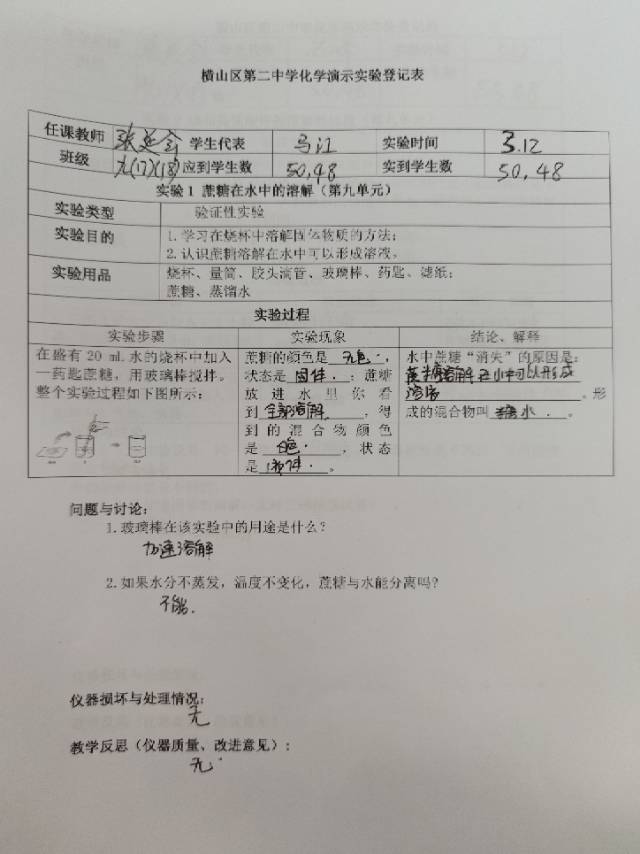 横山区第二中学化学演示实验登记表
任课教师 张延会 学生代表 马江 实验时间 3.12
班级 九(17)(18) 应到学生数 50,48 实到学生数 50,48
实验1 蔗糖在水中的溶解（第九单元）
实验类型 验证性实验
实验目的 1.学习在烧杯中溶解固体物质的方法；
2.认识蔗糖溶解在水中可以形成溶液。
实验用品 烧杯、量筒、胶头滴管、玻璃棒、药匙、滤纸；
蔗糖、蒸馏水
实验过程
实验步骤 实验现象 结论、解释
在盛有 20 mL 水的烧杯中加入一药匙蔗糖，用玻璃棒搅拌。整个实验过程如下图所示：
蔗糖的颜色是 无色，
状态是 固体．；蔗糖
放进水里你看
到 全部溶解，得
到的混合物颜色
是 无色，状态
是 液体．。
水中蔗糖“消失”的原因是：
蔗糖溶解在水中可以形成
溶液。形
成的混合物叫 糖水．。
问题与讨论：
1.玻璃棒在该实验中的用途是什么？
加速溶解
2.如果水分不蒸发，温度不变化，蔗糖与水能分离吗？
不能．
仪器损坏与处理情况：
无
教学反思（仪器质量、改进意见）：
无．